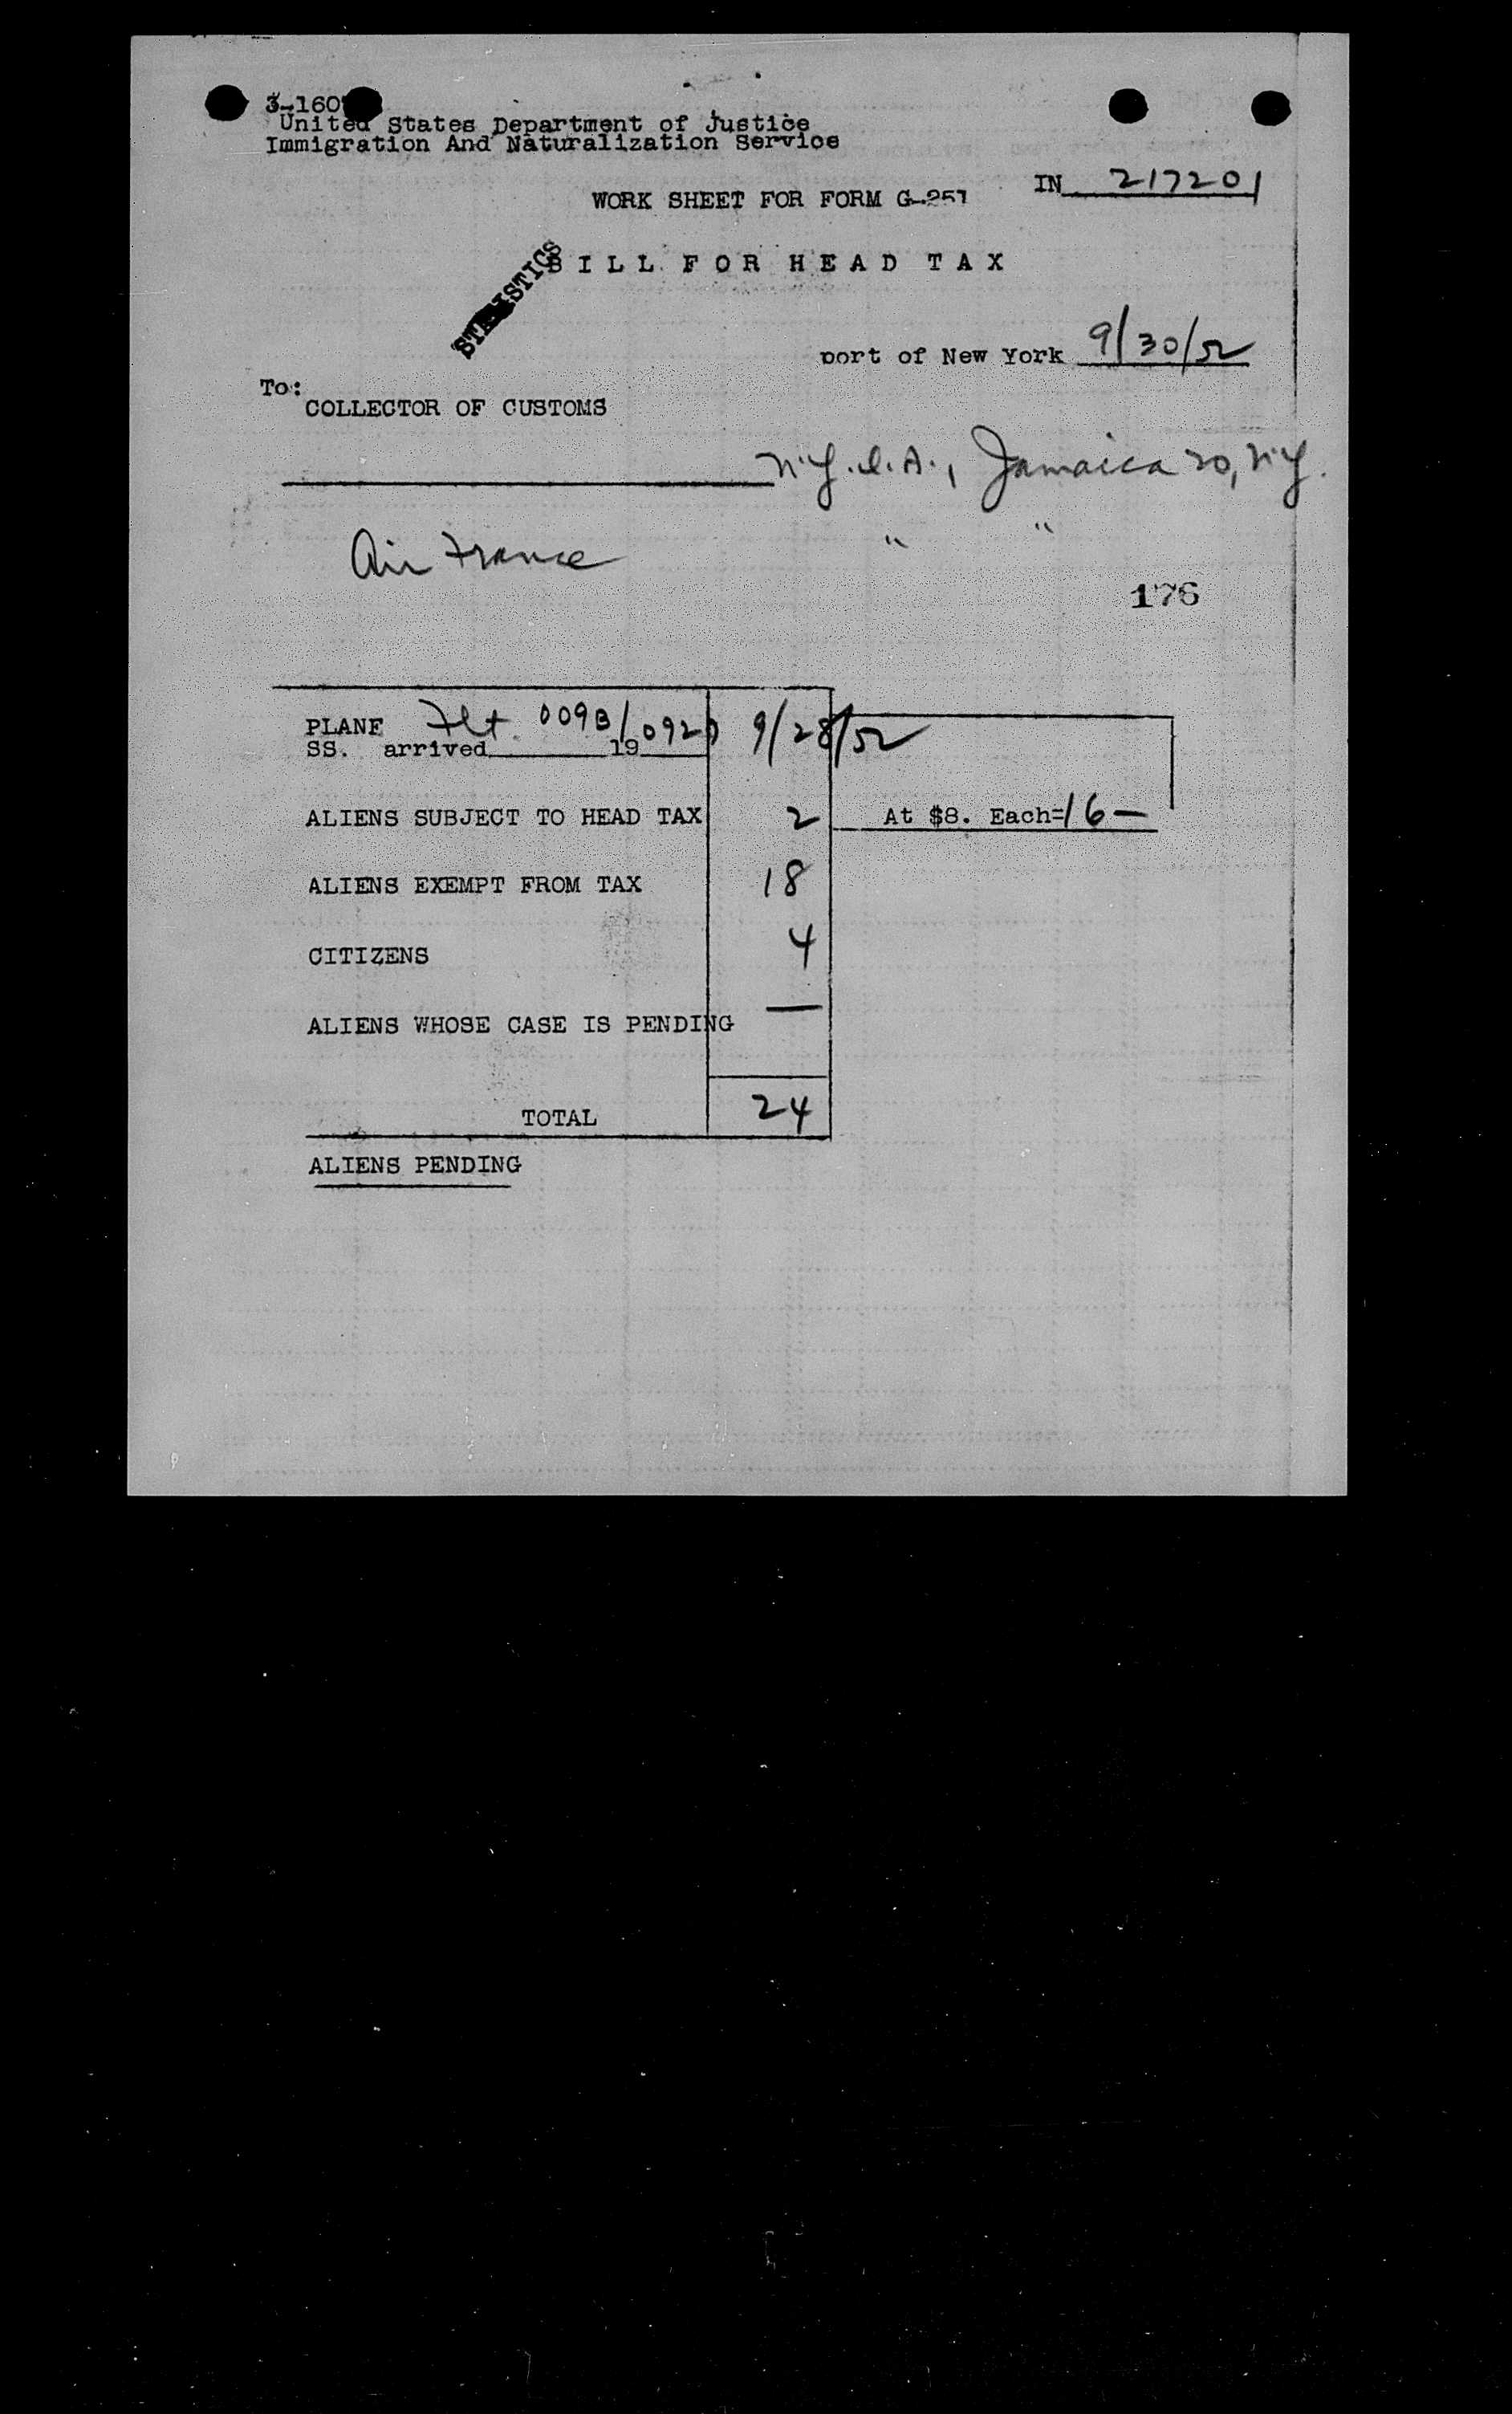 3-160
United States Department of Justice
Immigration And Naturalization Service
IN 217201
WORK SHEET FOR FORM G-251
STATISTICS
BILL FOR HEAD TAX
port of New York 9/30/52
To:
COLLECTOR OF CUSTOMS
N.Y.I.A., Jamaica 20, N.Y.
Air France " "
176
PLANE Flt. 009B/0920 9/28/52
SS. arrived 19
ALIENS SUBJECT TO HEAD TAX 2 At $8. Each=16—
ALIENS EXEMPT FROM TAX 18
CITIZENS 4
ALIENS WHOSE CASE IS PENDING —
TOTAL 24
ALIENS PENDING